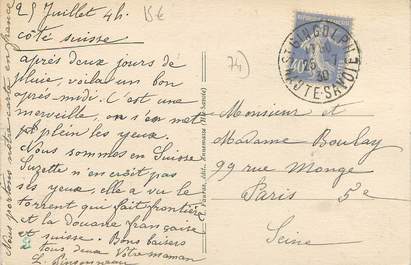 25 Juillet 4h.
côté suisse
après deux jours de
pluie, voila un bon
après-midi. C'est une
merveille, on s'en met
plein les yeux.
Nous sommes en Suisse
Suzette n'en croit pas
ses yeux, elle a vu le
torrent qui fait frontière
et la douane française
et suisse. Bons baisers
tous deux Votre maman
L. Pinsonneau
Nous portons notre carte en france
15€
74)
ST GINGOLPH
25 -7
30
HTE-SAVOIE
Monsieur et
Madame Boulay
99 rue Monge
Paris 5e
Seine